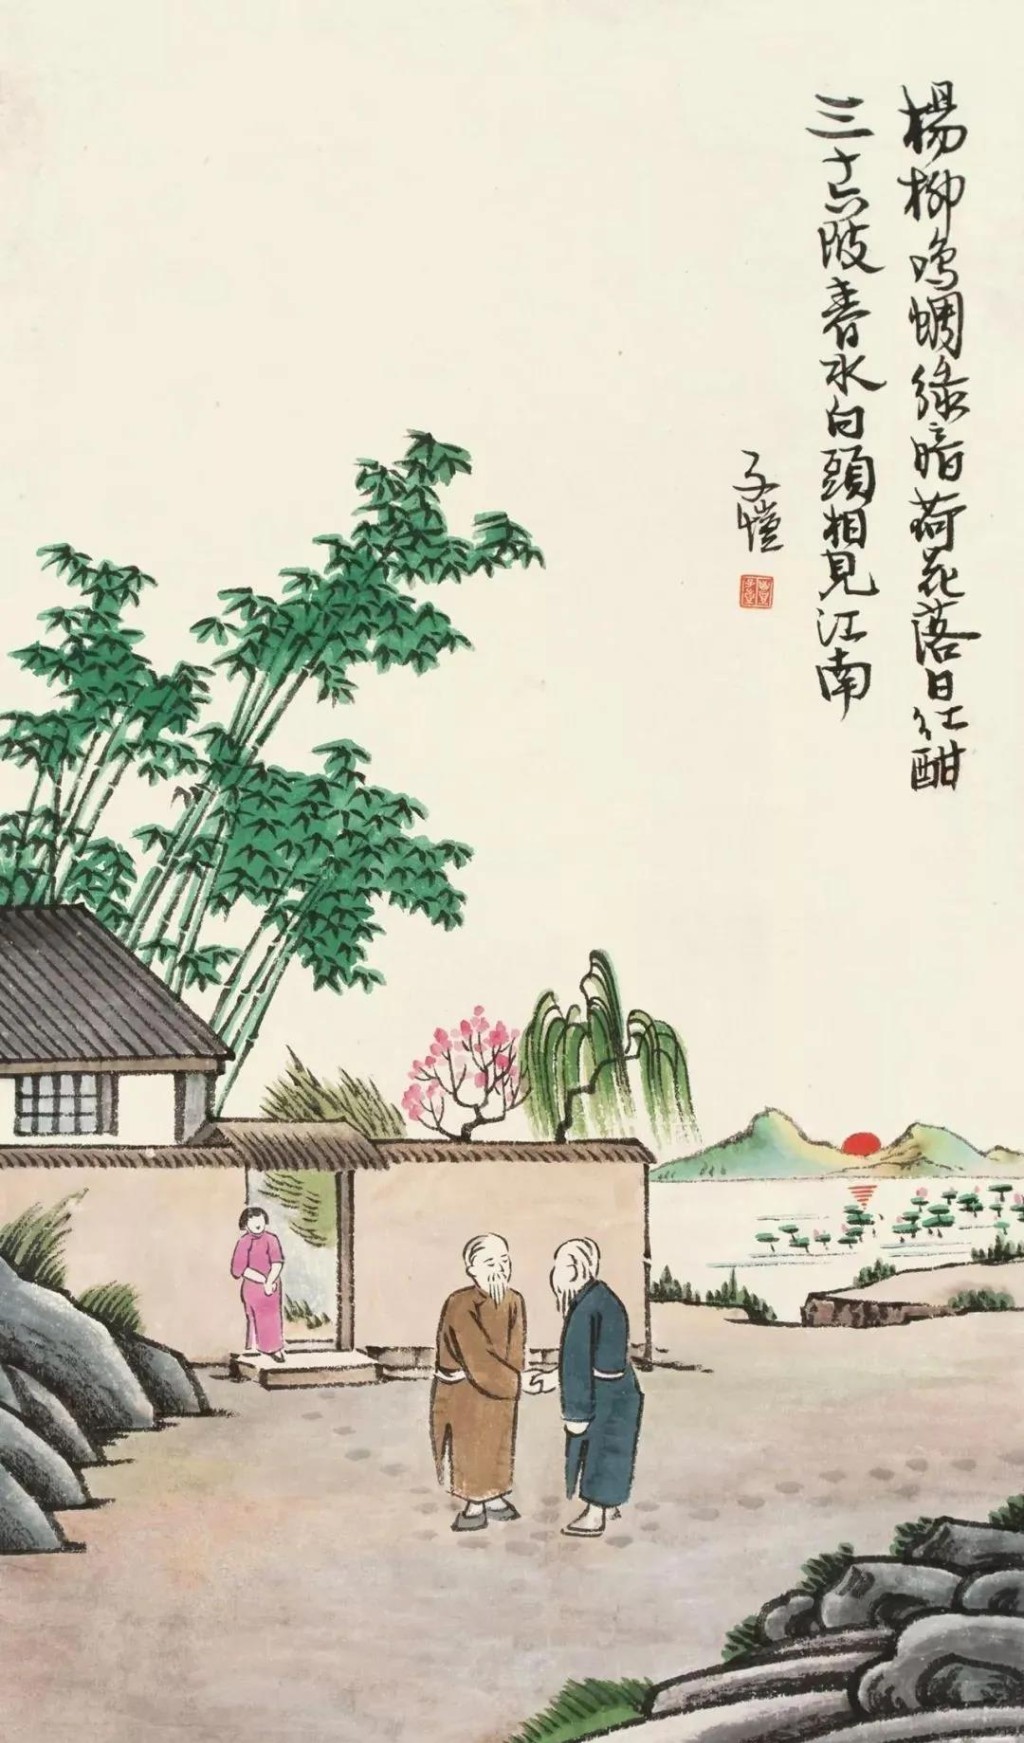 楊柳鸣蜩綠暗荷花落日红酣
三十六陂春水白頭相見江南
子愷